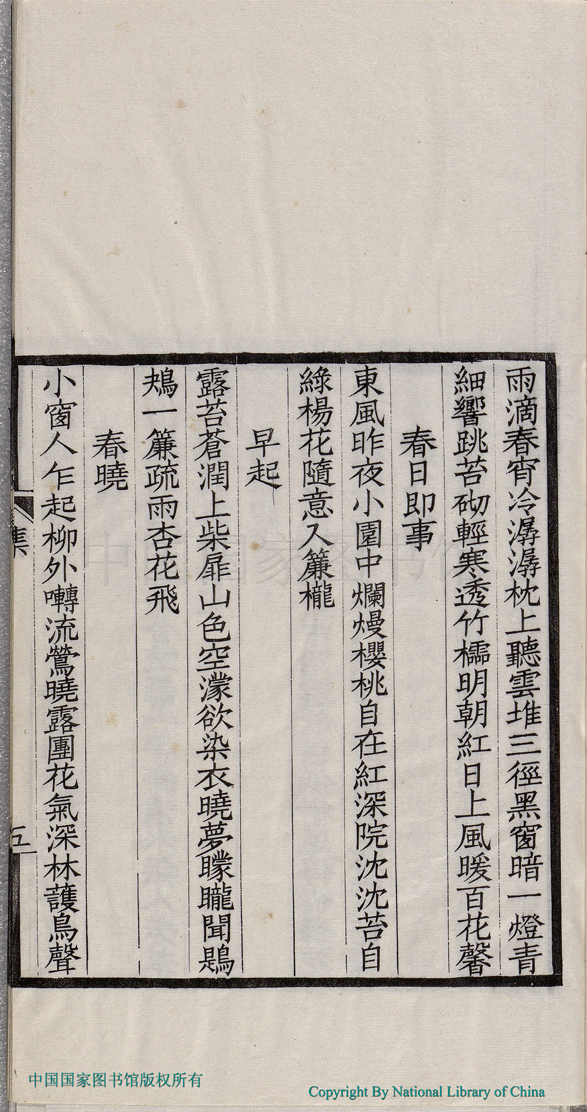 雨滴春宵冷潺潺枕上聽雲堆三徑黑窗暗一燈青
細響跳苔砌輕寒透竹櫺明朝紅日上風暖百花馨
春日即事
東風昨夜小園中爛熳櫻桃自在紅深院沈沈苔自
綠楊花隨意入簾櫳
早起
露苔蒼潤上柴扉山色空濛欲染衣曉夢矇矓聞鶗
鴂一簾疏雨杏花飛
春曉
小窗人乍起柳外囀流鶯曉露團花氣深林護鳥聲
集
五
中国国家图书馆版权所有
Copyright By National Library of China